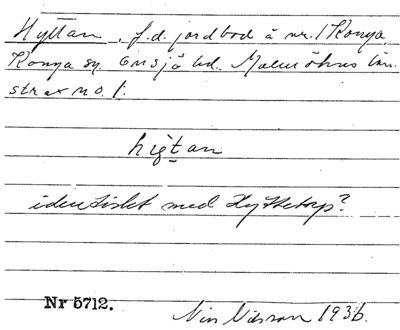 Hyttan, f.d. jordbod å nr. 1 Konga,
Konga sn. Onsjö hd. Malmöhus län.
strax n o. 1.
hig̣tan
identiskt med Hyttetorp?
Nr 5712.
Nils Nilsson 1936.